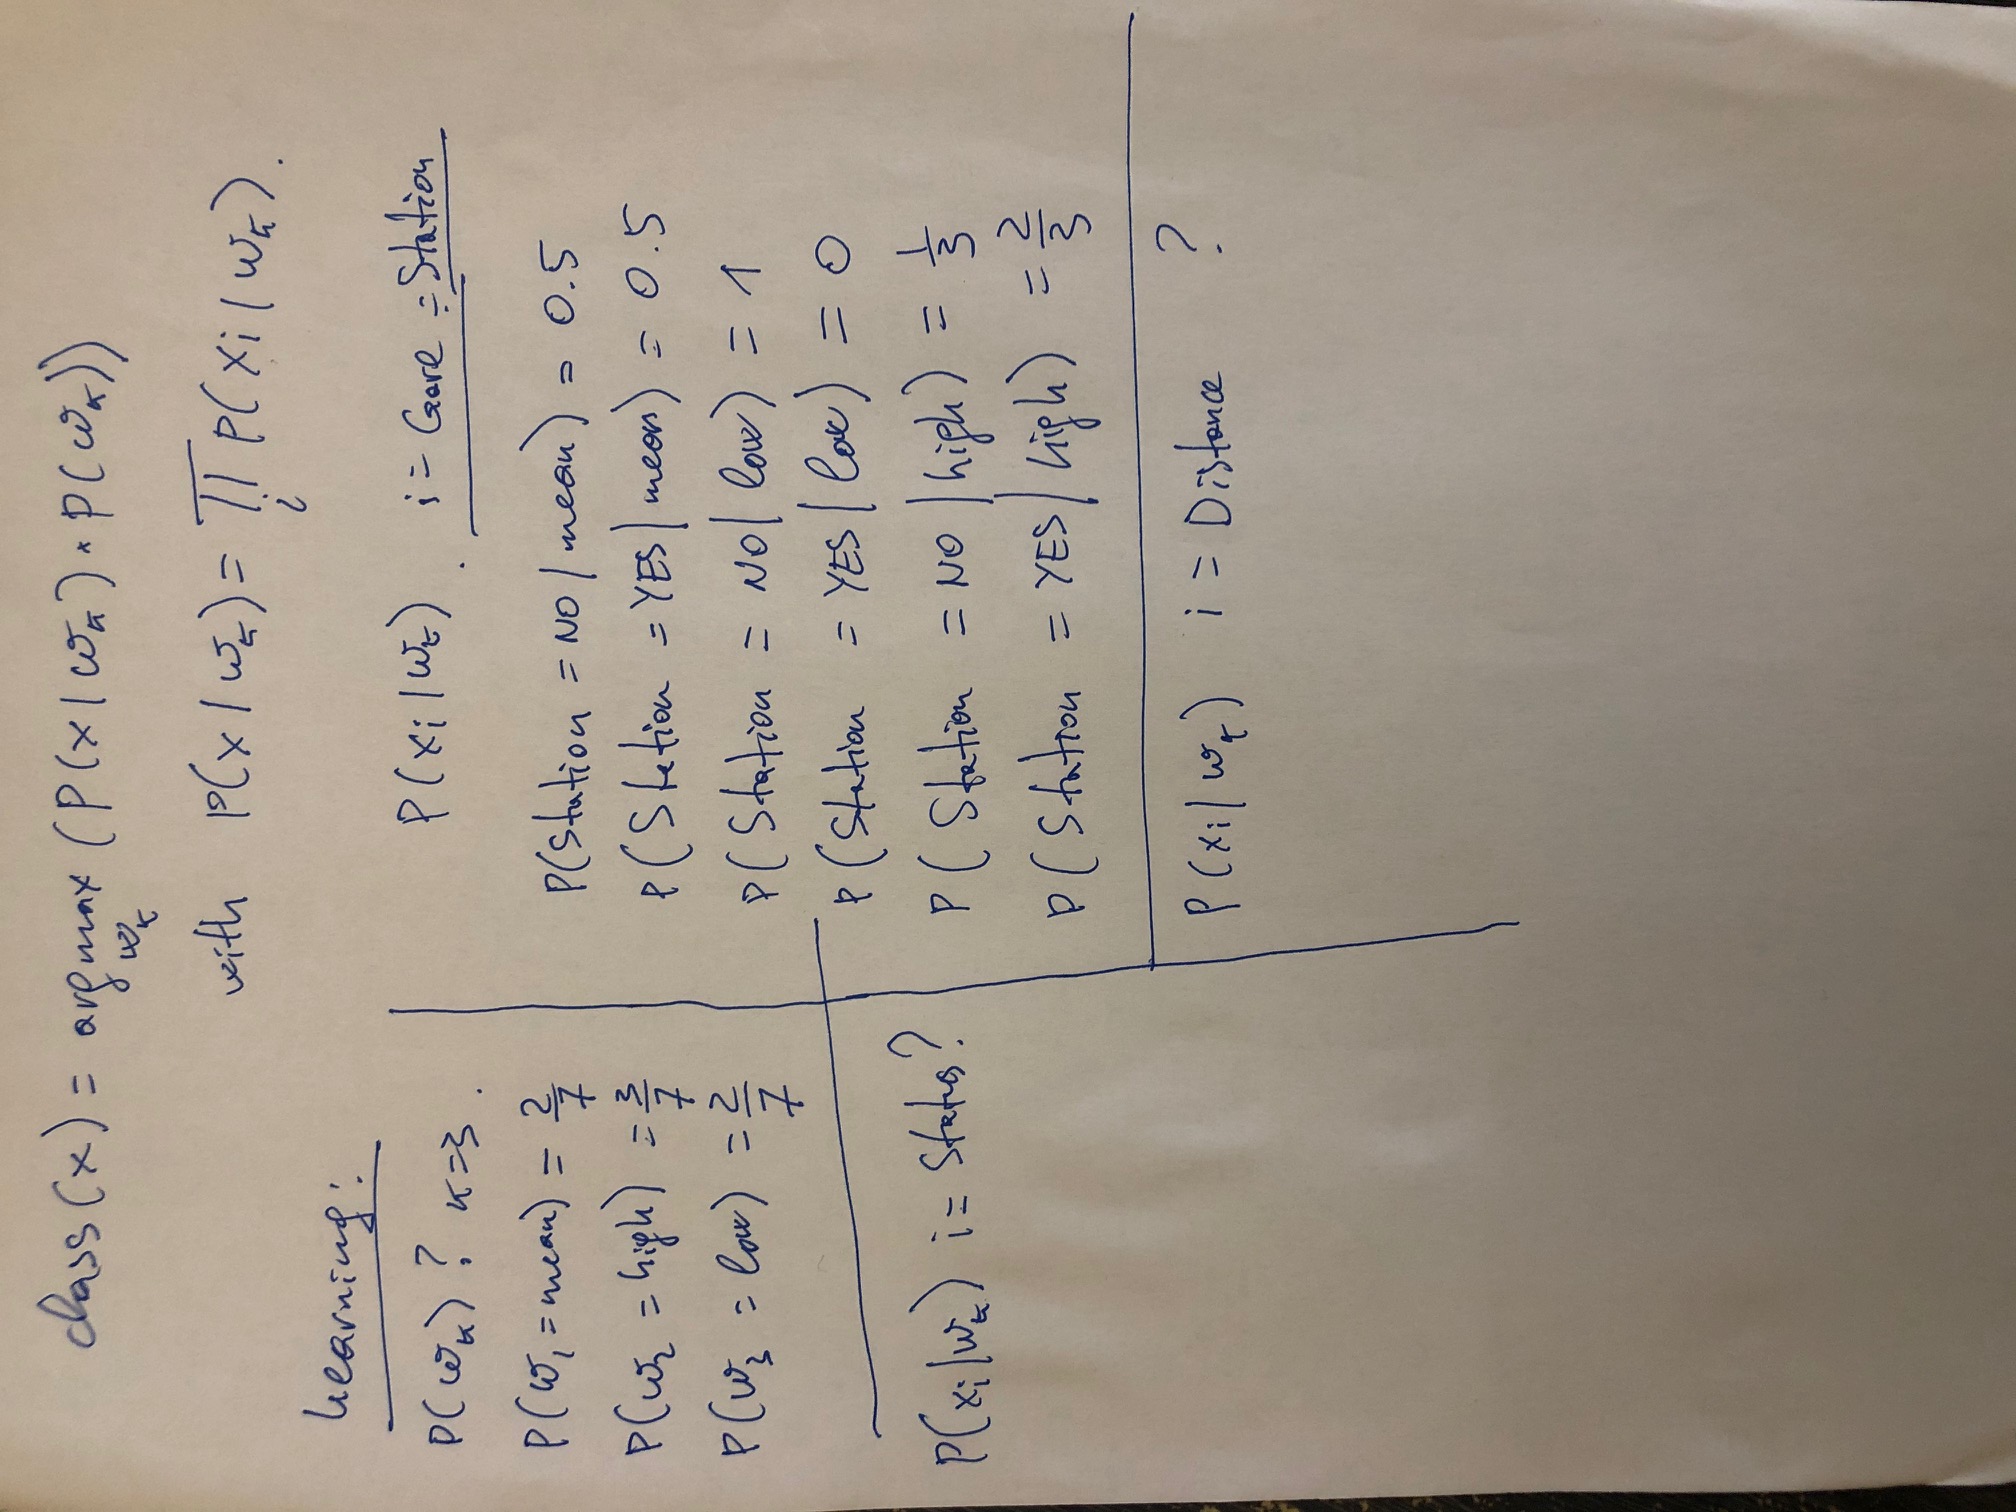 class(x) = argmax (P(x|ωₖ) * P(ωₖ))
ωₖ
with P(x|ωₖ) = ∏ P(xi|ωₖ).
i
Learning:
P(ωₖ) ? k=3.
P(ω₁ = mean) = 2/7
P(ω₂ = high) = 3/7
P(ω₃ = low) = 2/7
P(xi|ωₖ) i = Status?
P(xi|ωₖ). i = Gare = Station
P(Station = NO | mean) = 0.5
P(Station = YES | mean) = 0.5
P(Station = NO | low) = 1
P(Station = YES | low) = 0
P(Station = NO | high) = 1/3
P(Station = YES | high) = 2/3
P(xi|ωₖ) i = Distance ?